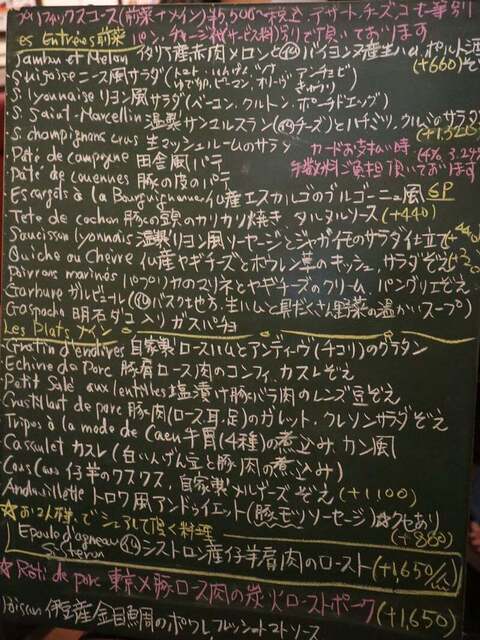 プリフィックスコース(前菜+メイン)¥5,500〜税込 デザート、チーズ、コーヒー等別
Les Entrées 前菜 パン・チャージ(サービス料)別で頂いております
Jambon et Melon イタリア産赤肉メロンと仏バイヨンヌ産生ハム、ポルト酒
(+660)
S. niçoise ニース風サラダ(トマト、いんげん、ゆで卵、ピーマン、オリーヴ、アンチョビ、きゅうり)
S. lyonnaise リヨン風サラダ(ベーコン、クルトン、ポーチドエッグ)
S. Saint-Marcellin 温製サンマルスラン(仏チーズ)とハチミツ、クルミのサラダ
(+1,320)
S. champignons crus 生マッシュルームのサラダ
カードお支払い時(4%, 3.24%)
手数料ご負担頂いております
Pâté de campagne 田舎風パテ
Pâté de couennes 豚の皮のパテ
Escargots à la Bourguignonne 仏産エスカルゴのブルゴーニュ風 6P
Tete de cochon 豚の頭のカリカリ焼き タルタルソース
(+440)
Saucisson lyonnais 温製リヨン風ソーセージとジャガイモのサラダ仕立て
(+440)
Quiche au Chèvre 仏産ヤギチーズとホウレン草のキッシュ、サラダぞえ
Poivrons marinés パプリカのマリネとヤギチーズのクリーム パングリエぞえ
Garbure ガルビュール(仏バスク地方、生ハムと具だくさん野菜の温かいスープ)
Gaspacho 明石ダコ入り ガスパチョ
Les Plats メイン
Gratin d'endives 自家製ロースハムとアンディーヴ(チコリ)のグラタン
Echine de Porc 豚肩ロース肉のコンフィ、カスレぞえ
Petit Salé aux lentilles 塩漬け豚バラ肉のレンズ豆ぞえ
Croustillant de porc 豚肉(ロース、耳、足)のガレット、クレソンサラダぞえ
Tripes à la mode de Caen 牛胃(4種)の煮込み、カン風
Cassoulet カスレ(白いんげん豆と豚肉の煮込み)
Couscous 仔羊のクスクス、自家製メルゲーズぞえ (+1,100)
Andouillette トロワ風アンドゥイエット(豚モツソーセージ)☆クセあり
(+880)
☆お2人様でシェアして頂く料理
Epaule d'agneau 仏シストロン産仔羊肩肉のロースト (+1,650/人)
Sisteron
☆Rôti de porc 東京X豚ロース肉の炭火ローストポーク (+1,650)
Poisson 伊豆産金目鯛のポワレ フレッシュトマトソース